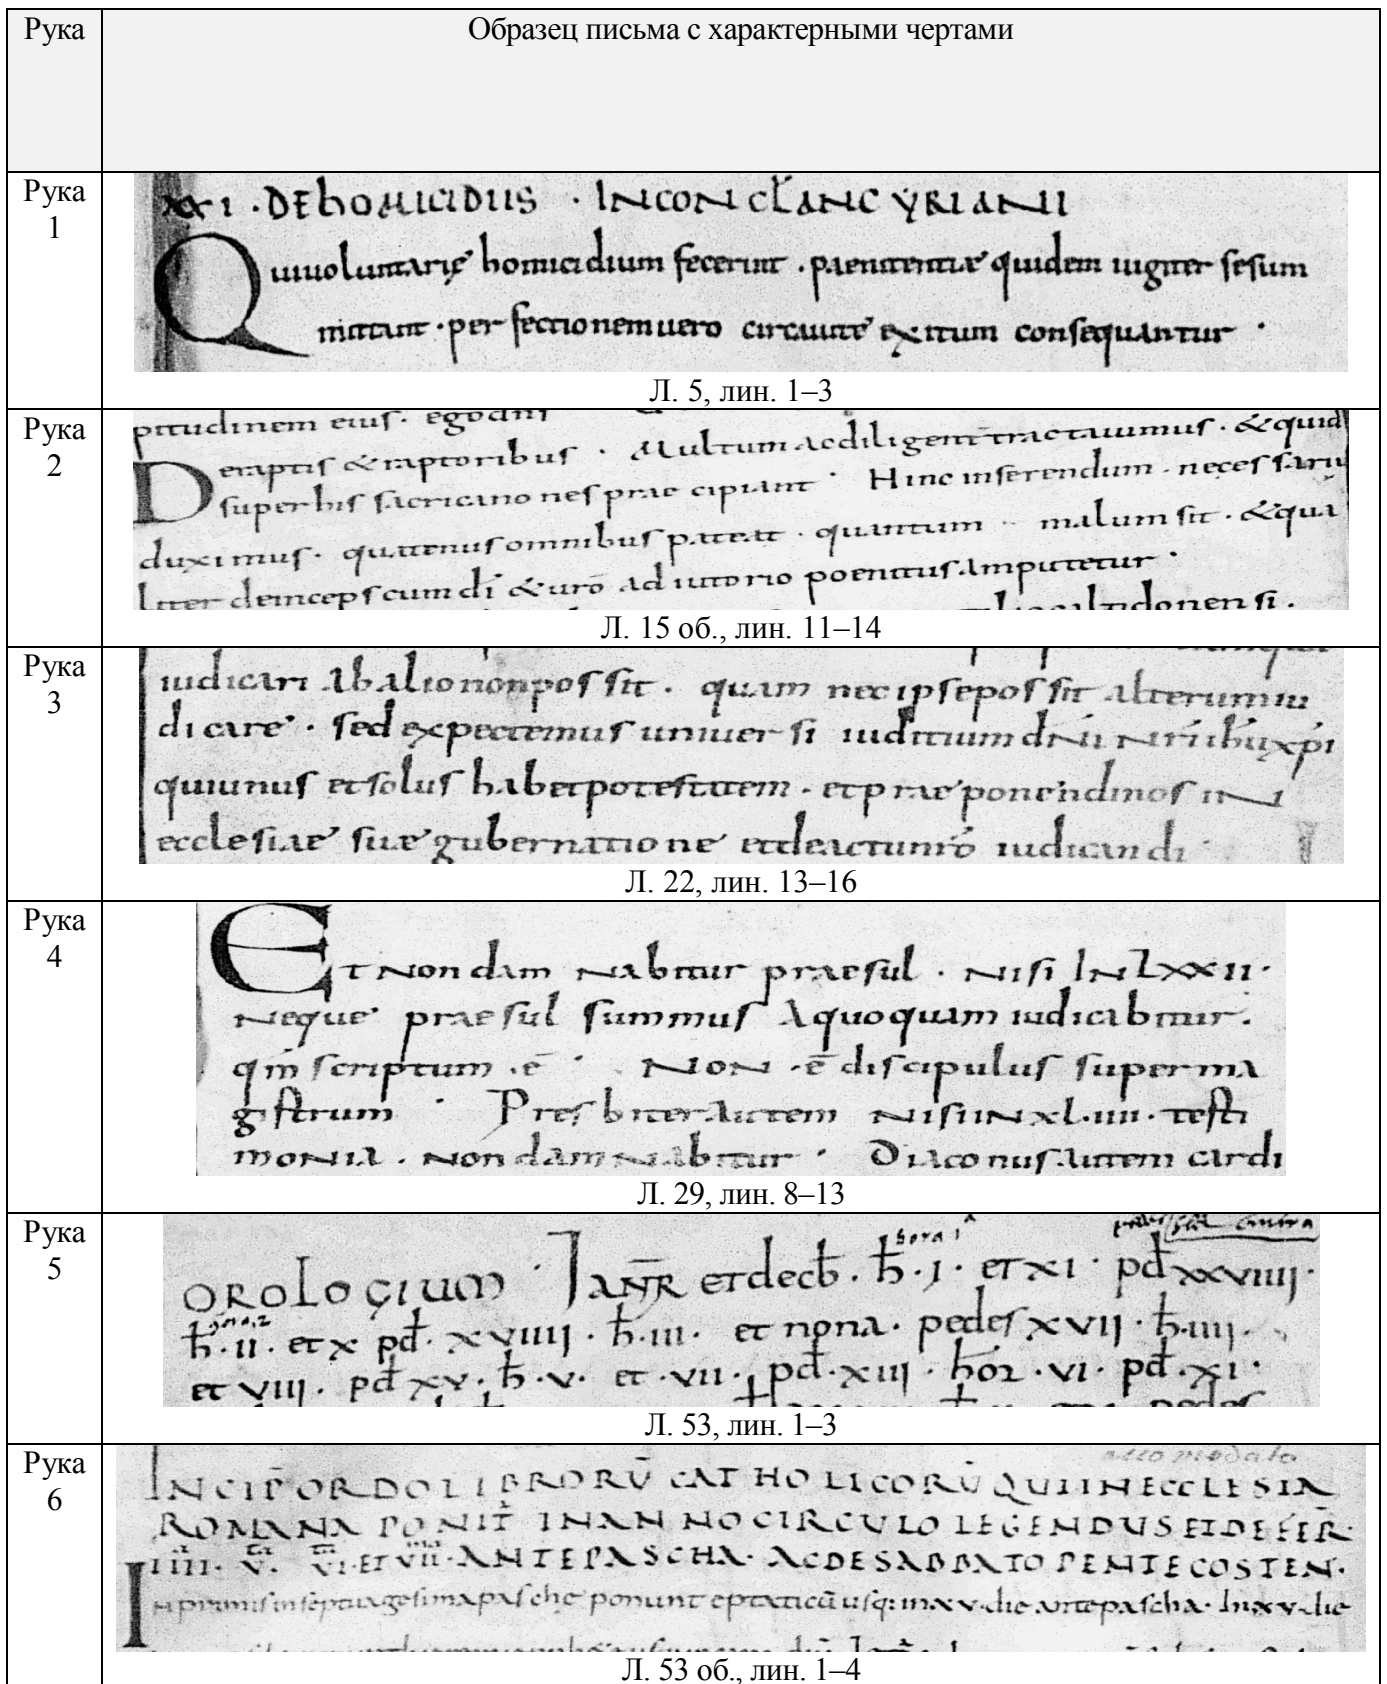 Рука Образец письма с характерными чертами
Рука 1
XXI · DE hOMICIDIIS · IN CON CL ANC YRIANII
Qui uoluntarię homicidium fecerint · paenitentiæ quidem iugiter sesum
mittant · per fectionem uero circa uite exitum consequantur ·
Л. 5, лин. 1–3
Рука 2
pitudinem eius · ego
De raptis & raptoribus · Multum ac diligent tractauimus · & quid
super his sacri canones prae cipiant · Hinc inserendum · neces sariu
duximus · quatenus omnibus pateat · quantum malum sit · & qua
liter deinceps cum dī & urō ad iutorio poenitus amputetur ·
Л. 15 об., лин. 11–14
Рука 3
iudicari ab alio non pos sit · quam nec ipse pos sit alterum iu
dicare · sed expectemus uniuer si iuditium dni nri ihu xpi
qui unus et solus habet potestatem · et prae ponendi nos in
ecclesiae suæ gubernatione et de actu nrō iudicandi
Л. 22, лин. 13–16
Рука 4
Et non dam nabitur praesul · nisi In LXXII ·
Neque praesul summus a quoquam iudicabitur ·
qm scriptum · ē · Non · ē discipulus super ma
gistrum · Presbiter autem nisi in xl · iiii · testi
monia · non dam nabitur · Diaconus autem cardi
Л. 29, лин. 8–13
Рука 5
hora 1
OROLOGIUM · IANR et decb · h · j · et xi · pd xxviiij ·
h · ii · et x pd · xviiij · h · iii · et nona · pedes xvij · h · iiij ·
et viii · pd xv · h · v · et · vii · pd · xiij · hor · vi · pd · xi ·
Л. 53, лин. 1–3
Рука 6
accomodato
INCIP ORDO LIBRORŪ CATHOLICORŪ QUI IN ECCLESIA
ROMANA PONIT IN ANNO CIRCULO LEGENDUS EI DE FER ·
IIII · V · VI · ET VII · ANTE PASCHA · AC DE SABBATO PENTECOSTEN ·
In primis in septuagesima pasche ponunt eptaticū usq: in xv · die ante pascha · In xv · die
Л. 53 об., лин. 1–4